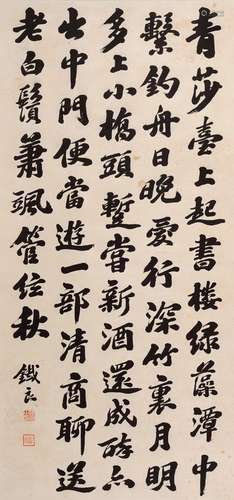 青莎臺上起書楼綠藻潭中
繫釣舟日晚愛行深竹裏月明
多上小橋頭暫嘗新酒還成醉亦
出中門便當遊一部清商聊送
老白鬢蕭颯管絃秋
鐵良